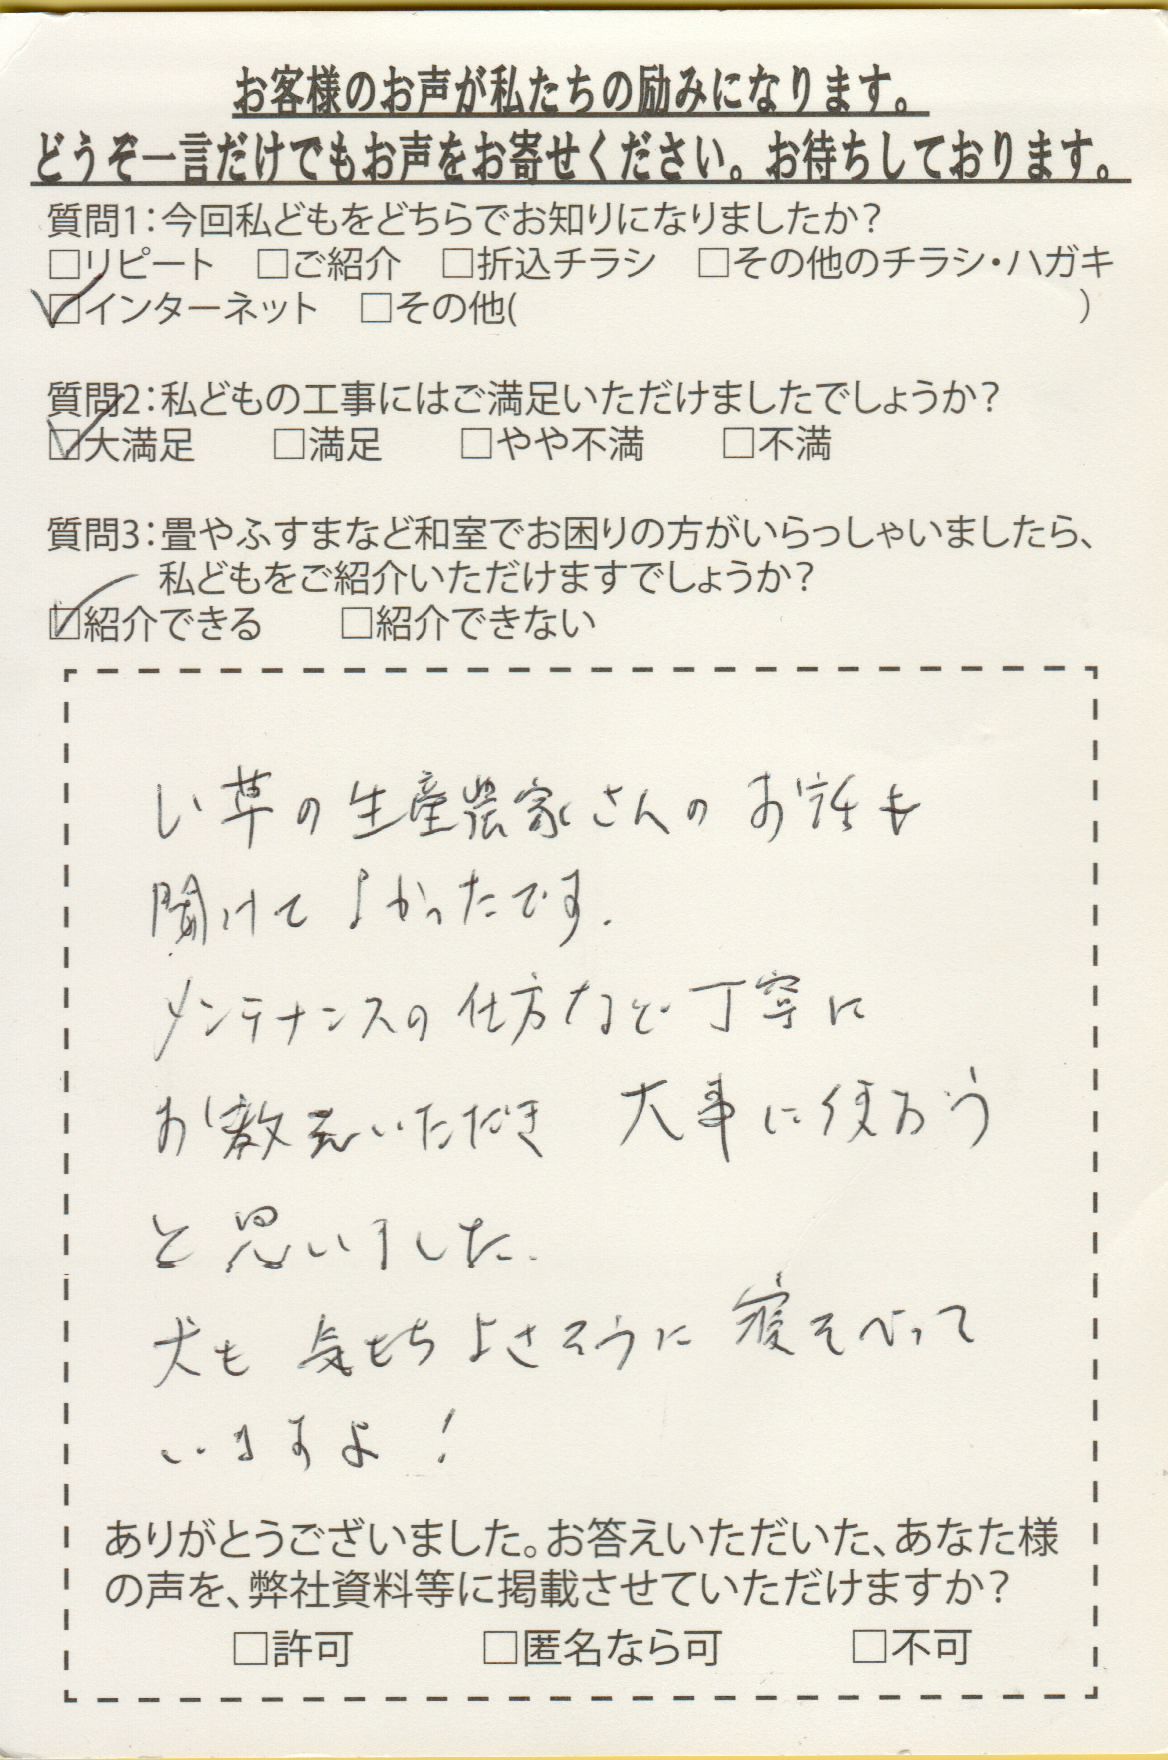 お客様のお声が私たちの励みになります。
どうぞ一言だけでもお声をお寄せください。お待ちしております。
質問1：今回私どもをどちらでお知りになりましたか？
□リピート □ご紹介 □折込チラシ □その他のチラシ・ハガキ
☑インターネット □その他( )
質問2：私どもの工事にはご満足いただけましたでしょうか？
☑大満足 □満足 □やや不満 □不満
質問3：畳やふすまなど和室でお困りの方がいらっしゃいましたら、
私どもをご紹介いただけますでしょうか？
☑紹介できる □紹介できない
い草の生産農家さんのお話も
聞けてよかったです.
メンテナンスの仕方など丁寧に
お教えいただき 大事に使おう
と思いました.
犬も気もちよさそうに寝そべって
いますよ！
ありがとうございました。お答えいただいた、あなた様
の声を、弊社資料等に掲載させていただけますか？
□許可 □匿名なら可 □不可